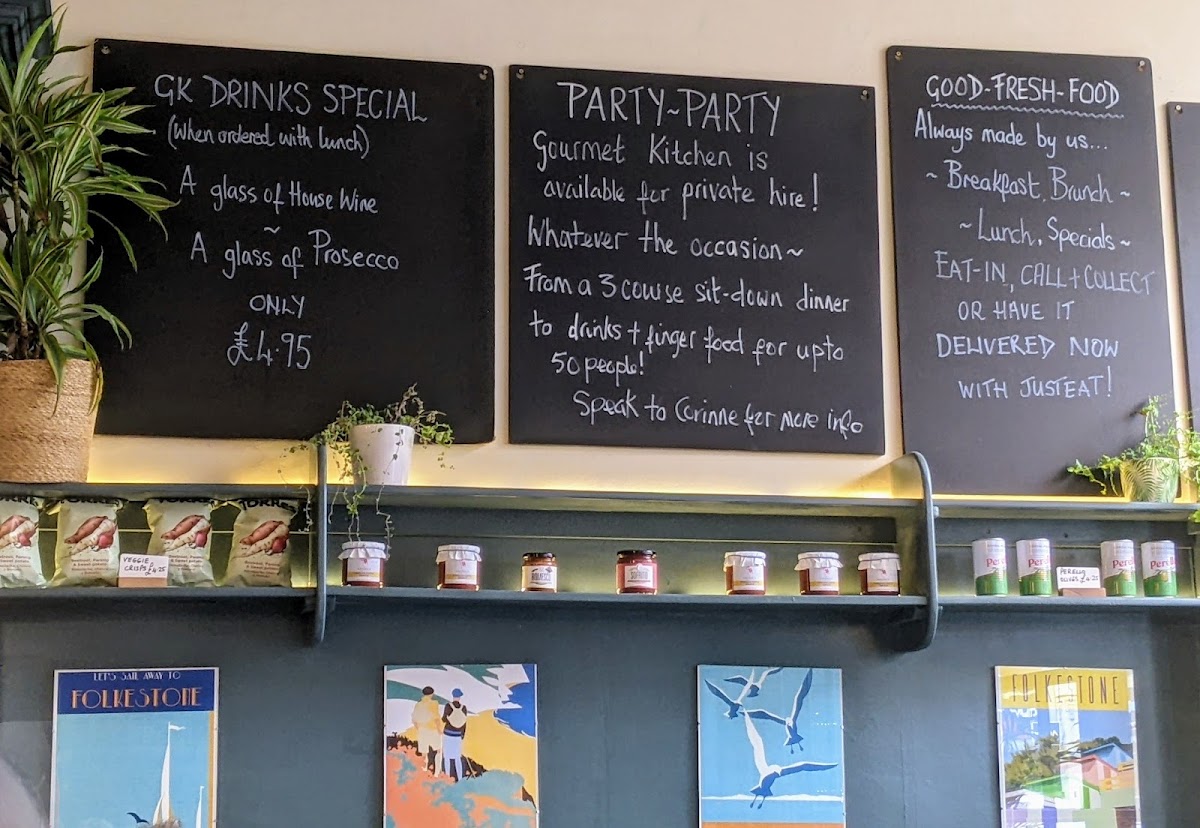 GK DRINKS SPECIAL
(When ordered with lunch)
A glass of House Wine
~
A glass of Prosecco
ONLY
£4.95
PARTY~PARTY
Gourmet Kitchen is
available for private hire!
Whatever the occasion~
From a 3 course sit-down dinner
to drinks + finger food for upto
50 people!
Speak to Corinne for more info
GOOD-FRESH-FOOD
Always made by us...
~ Breakfast, Brunch ~
~ Lunch, Specials ~
EAT-IN, CALL + COLLECT
OR HAVE IT
DELIVERED NOW
WITH JUSTEAT!
VEGGIE
CRISPS £4.25
LET'S SAIL AWAY TO
FOLKESTONE
FOLKESTONE